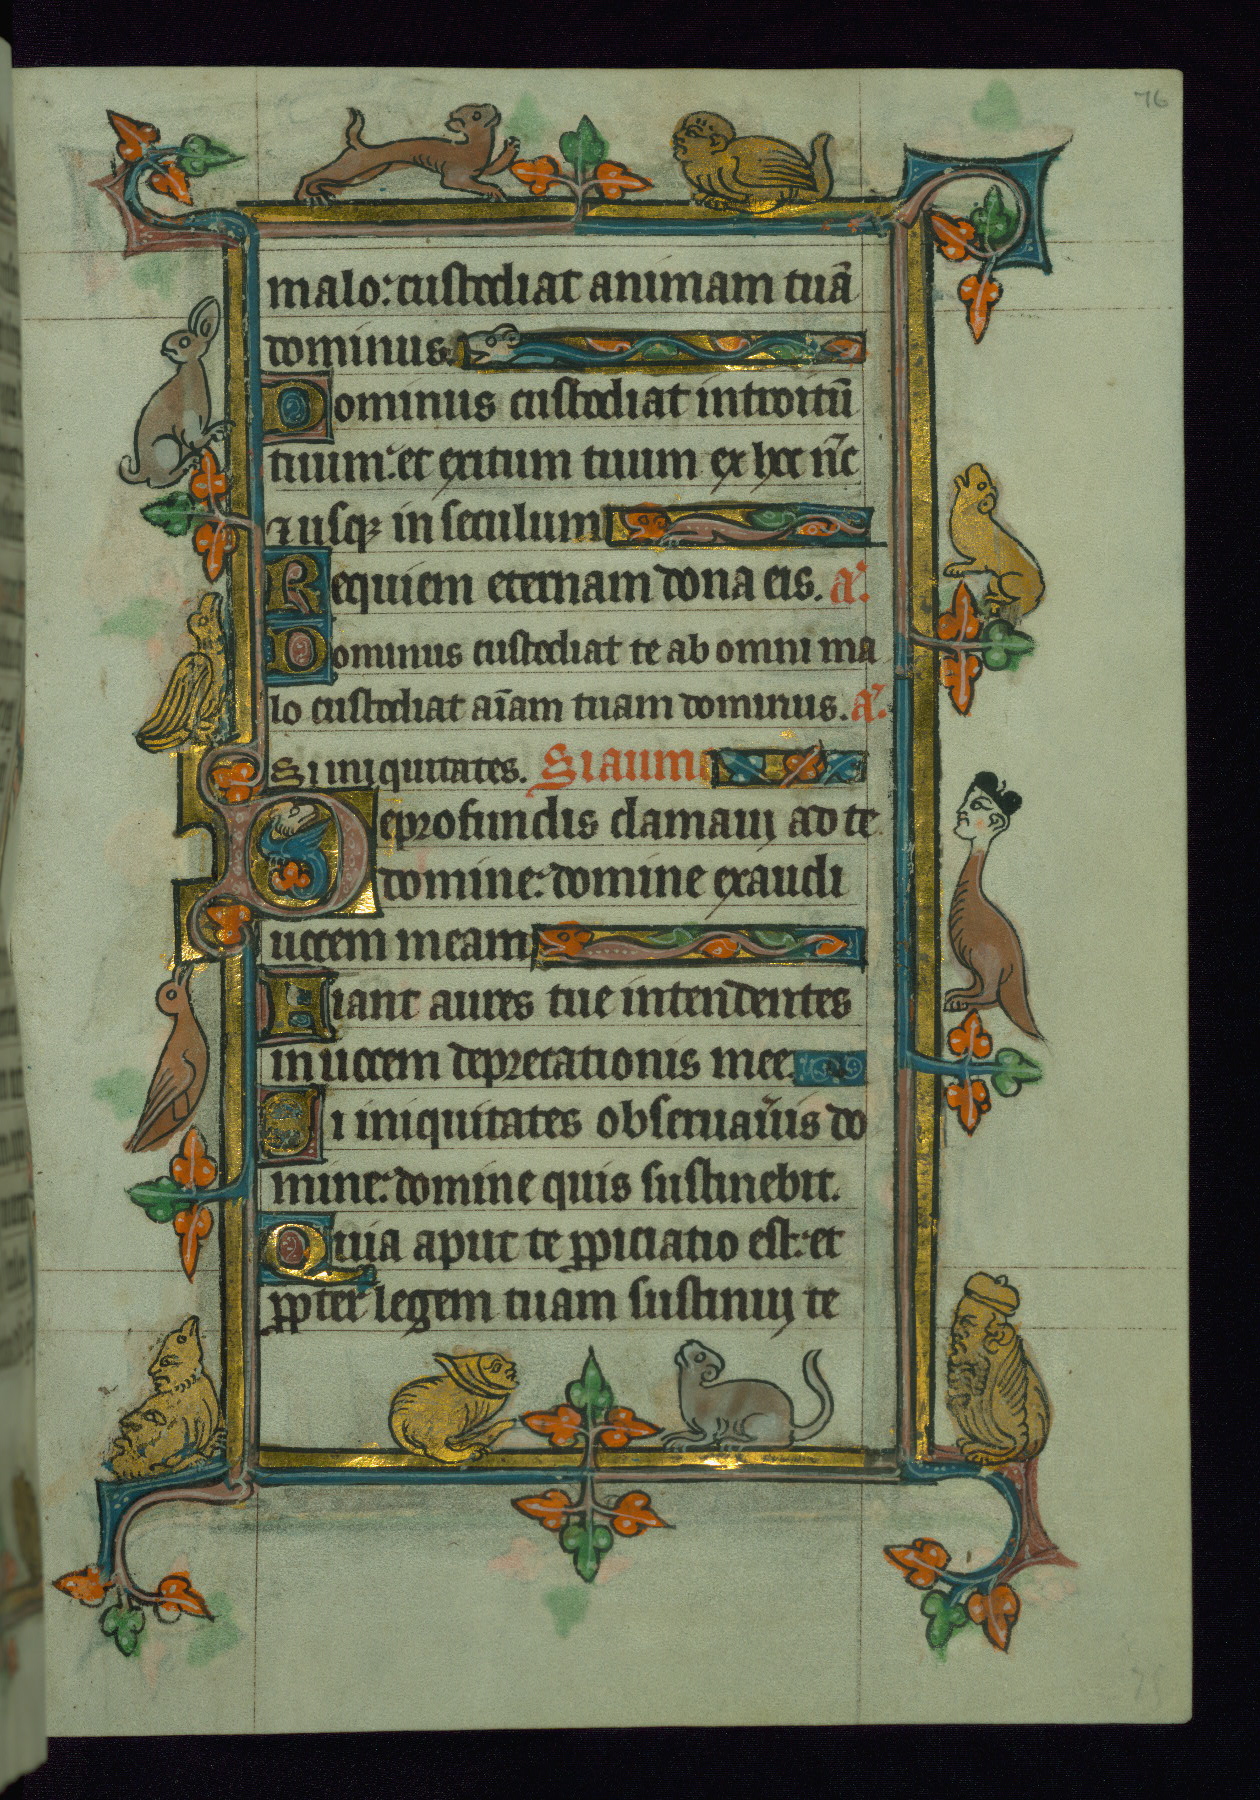 76
malo: custodiat animam tuā
dominus.
Dominus custodiat introitū
tuum: et exitum tuum ex hoc nūc
⁊ usqꝫ in seculum
Requiem eternam dona eis. a͛.
Dominus custodiat te ab omni ma
lo custodiat aīam tuam dominus. a͛.
Si iniquitates.
De profundis clamaui ad te
domine: domine exaudi
uocem meam
Fiant aures tue intendentes
in uocem deprecationis mee.
Si iniquitates obseruau͛is do
mine: domine quis sustinebit.
Quia aput te ꝓpiciatio est: et
ꝓpter legem tuam sustinui te
75